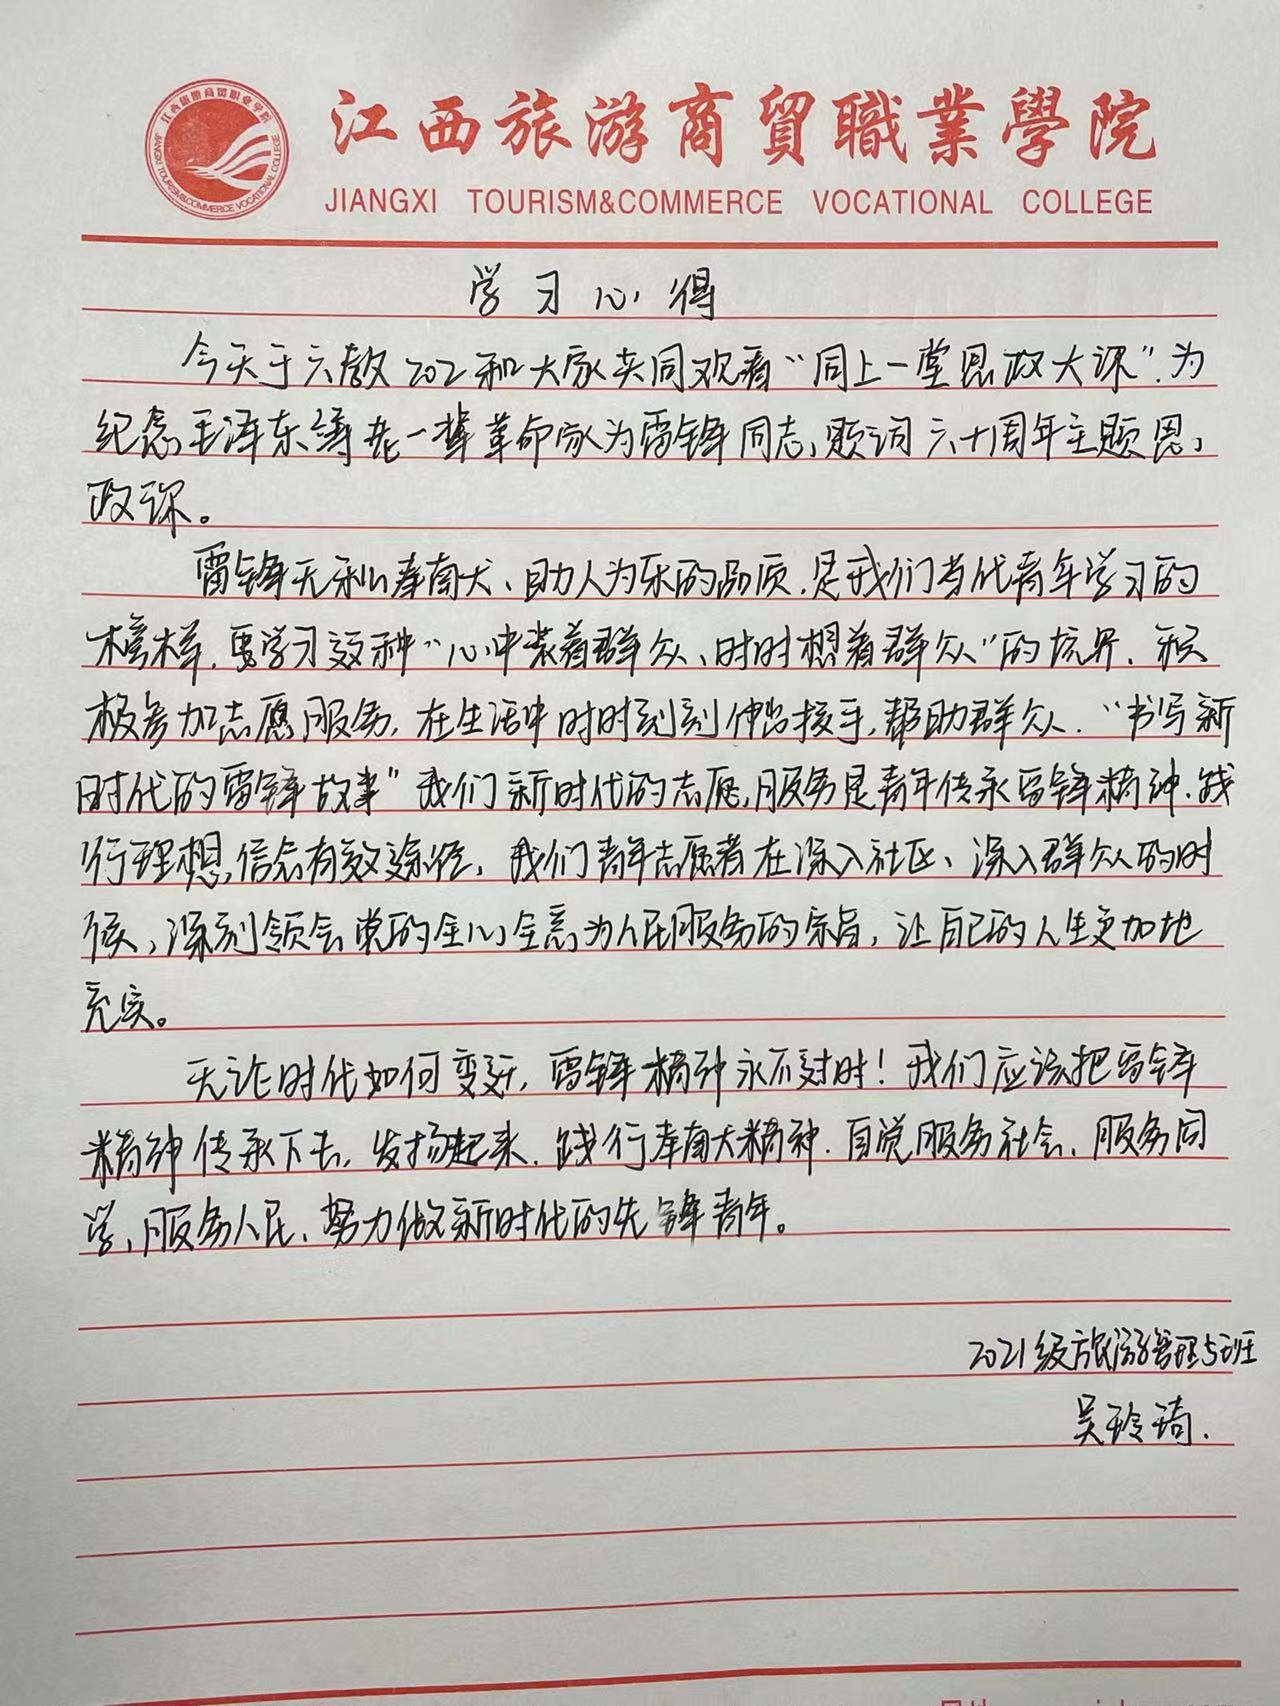 江西旅游商貿職業學院
JIANGXI TOURISM&COMMERCE VOCATIONAL COLLEGE
学习心得
今天于六教202和大家共同观看“同上一堂思政大课”.为
纪念毛泽东等老一辈革命家为雷锋同志题词六十周年主题思
政课。
雷锋无私奉献、助人为乐的品质.是我们当代青年学习的
榜样.要学习这种“心中装着群众、时时想着群众”的境界.积
极参加志愿服务,在生活中时时刻刻伸出援手,帮助群众.“书写新
时代的雷锋故事”我们新时代的志愿服务是青年传承雷锋精神.践
行理想信念有效途径,我们青年志愿者在深入社区、深入群众的时
候,深刻领会党的全心全意为人民服务的宗旨,让自己的人生更加地
充实。
无论时代如何变迁,雷锋精神永不过时!我们应该把雷锋
精神传承下去,发扬起来.践行奉献精神.自觉服务社会、服务同
学,服务人民、努力做新时代的先锋青年。
2021级旅游管理5班
吴玲琦.